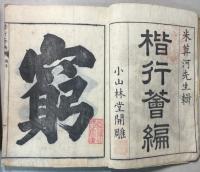 朱笥河先生輯
楷行薈編
小山林堂開雕
窮